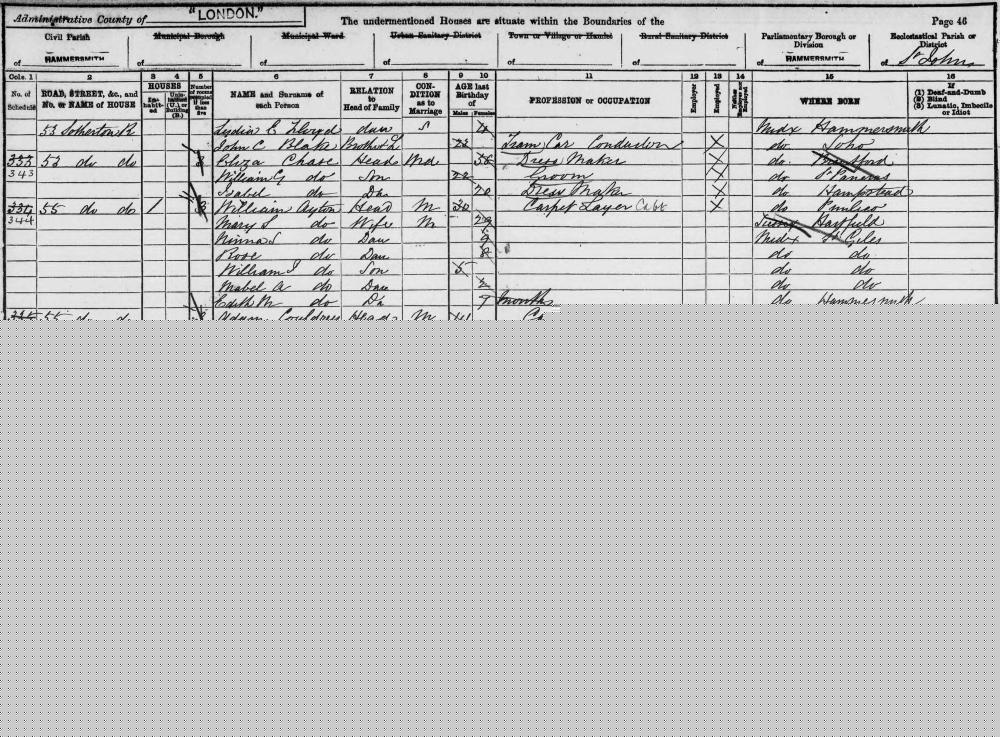 Administrative County of "LONDON." The undermentioned Houses are situate within the Boundaries of the Page 46
Civil Parish Municipal Borough Municipal Ward Urban Sanitary District Town or Village or Hamlet Rural Sanitary District Parliamentary Borough or Division Ecclesiastical Parish or District
of HAMMERSMITH of of of of of of HAMMERSMITH of St Johns
Cols. 1 2 3 4 5 6 7 8 9 10 11 12 13 14 15 16
No. of Schedule ROAD, STREET, &c., and No. or NAME of HOUSE HOUSES Inhabited Uninhabited (U.) or Building (B.) Number of rooms occupied if less than five NAME and Surname of each Person RELATION to Head of Family CONDITION as to Marriage AGE last Birthday of Males Females PROFESSION or OCCUPATION Employer Employed Neither Employer nor Employed WHERE BORN If (1) Deaf-and-Dumb (2) Blind (3) Lunatic, Imbecile or Idiot
53 Lydia E Lloyd daur S Midx Hammersmith
John C Blake Brother L 22 Tram Car Conductor X do Soho
333 53 do do Eliza Chase Head Wd 58 Dress Maker X do. Brentford
343 William G do Son 22 Groom X do St Pancras
Isabel do Da. 20 Dress Maker X do Hampstead
334 55 do do 1 William Ayton Head M 30 Carpet Layer X do Pimlico
344 Mary S do Wife M Sussex Hartfield
Ninna S do Dau 9 Midx St Giles
Rose do Dau 8 do do
William J do Son 5 do do
Mabel A do Dau 2 do do
Edith M do Da 9 months do Hammersmith
55 do do Head M